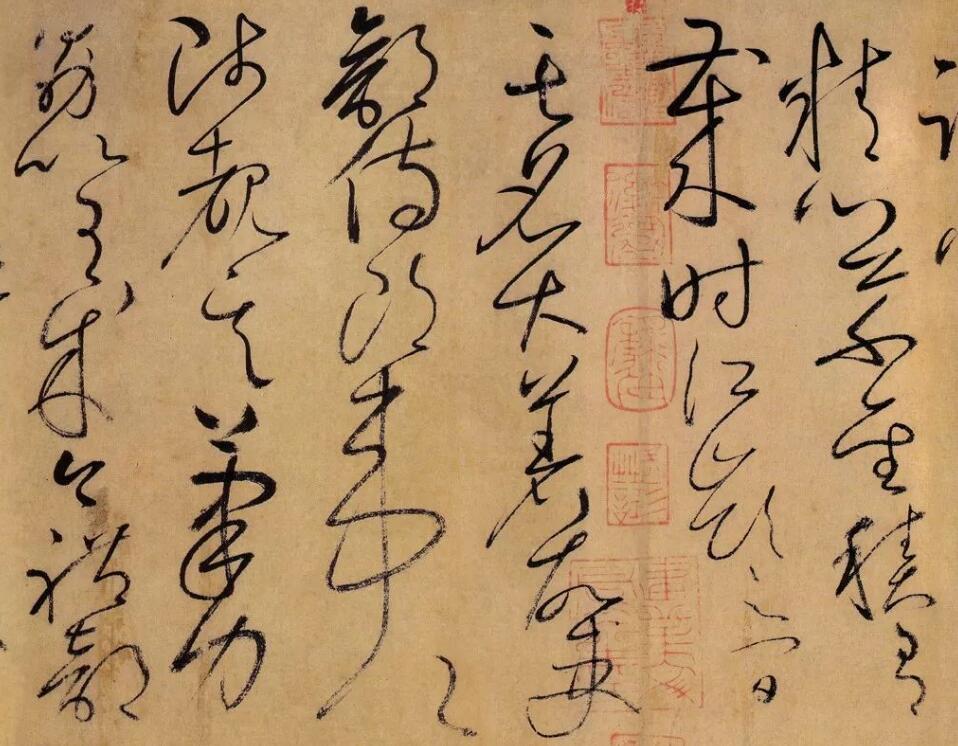 精心草聖積有
歲時江嶺之間
其名大著故吏
部侍郎韋公
陟覩其筆力
勗以有成今禮部